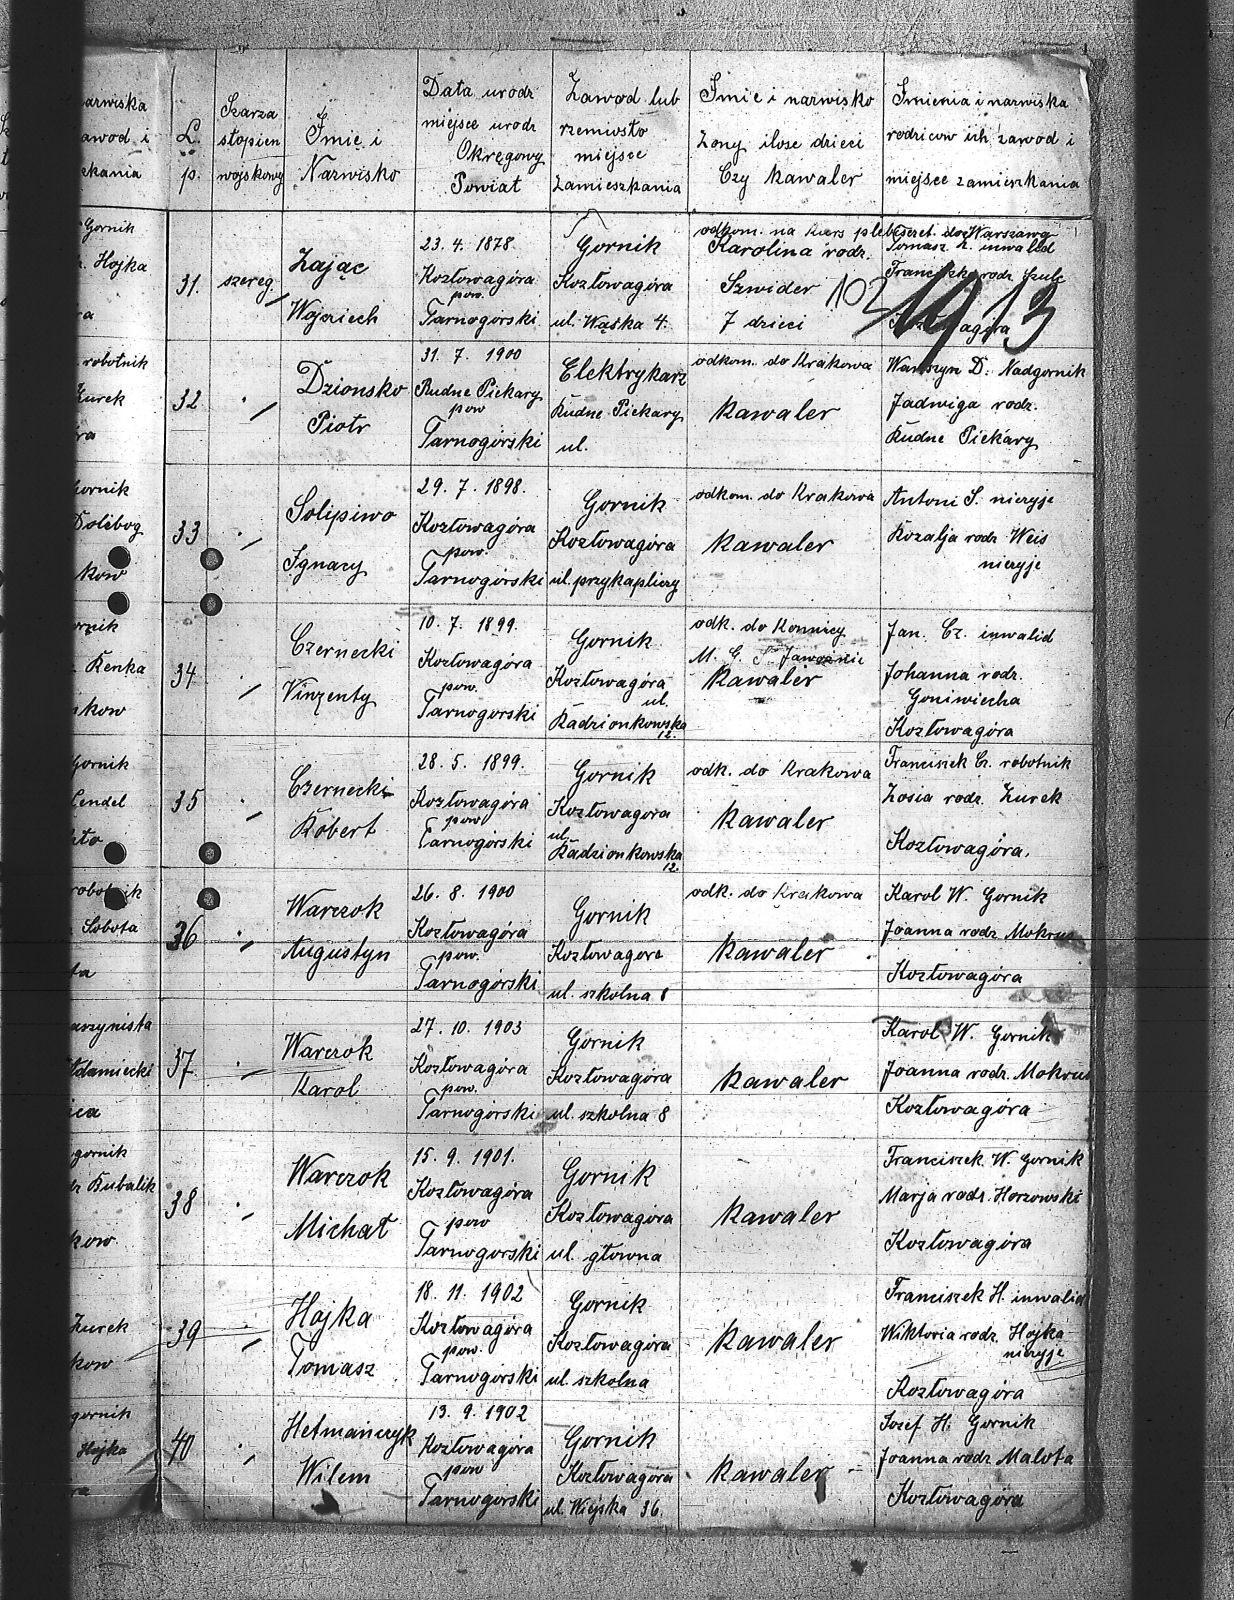 L. p.
Szarza stopień wojskowy
Imię i Nazwisko
Data urodz miejsce urodz Okręgowy Powiat
Zawod lub rzemiosło miejsce zamieszkania
Imię i nazwisko żony ilosc dzieci Czy kawaler
Imiona i nazwiska rodziców ich zawód i miejsce zamieszkania
Gornik
Hojka
31.
szereg.
Zając
Wojciech
23. 4. 1878.
Kozłowagóra
pow.
Tarnogorski
Gornik
Kozłowagóra
ul. Wąska 4.
odkom. na kurs plebiszt. do Warszawy
Karolina rodz.
Szwider
7 dzieci
Tomasz Z. inwalid
Franciszka rodz. Szulc
1913
robotnik
Żurek
32
Dzionsko
Piotr
31. 7. 1900
Rudne Piekary
pow
Tarnogórski
Elektrykarz
Rudne Piekary
ul.
odkom. do Krakowa
kawaler
D. Nadgornik
Jadwiga rodz.
Rudne Piekary
33
Solipiwo
Ignacy
29. 7. 1898.
Kozłowagóra
pow.
Tarnogórski
Gornik
Kozłowagóra
ul. przykaplicy
odkom. do Krakowa
kawaler
Antoni S. nieżyje
Rozalja rodz Weis
nieżyje
Kenka
34
Czernecki
Vinzenty
10. 7. 1899.
Kozłowagóra
pow.
Tarnogorski
Gornik
Kozłowagóra
ul.
Radzionkowska
12.
odk. do Konnicy
M. G. Jaworznie
kawaler
Jan. Cz. inwalid
Johanna rodz.
Goniwiecha
Kozłowagóra
35
Czernecki
Robert
28. 5. 1899.
Kozłowagóra
pow
Tarnogórski
Gornik
Kozłowagora
ul.
Radzionkowska
12.
odk. do Krakowa
kawaler
Franciszek Cz. robotnik
Zosia rodz. Żurek
Kozłowagóra.
robotnik
Sobota
36
Warczok
Augustyn
26. 8. 1900
Kozłowagóra
pow.
Tarnogórski
Gornik
Kozłowagóra
ul. szkolna 8
odk. do Krakowa
kawaler
Karol W. Gornik
Joanna rodz. Mokrus
Kozłowagóra
37.
Warczok
Karol
27. 10. 1903
Kozłowagóra
pow.
Tarnogórski
Gornik
Kozłowagóra
ul. szkolna 8
kawaler
Karol W. Gornik
Joanna rodz. Mokrus
Kozłowagóra
gornik
Kubalik
38
Warczok
Michał
15. 9. 1901.
Kozłowagóra
pow
Tarnogorski
Gornik
Kozłowagóra
ul. głowna
kawaler
Franciszek W. Gornik
Marja rodz. Horzowski
Kozłowagóra
Żurek
39
Hojka
Tomasz
18. 11. 1902
Kozłowagóra
pow.
Tarnogórski
Gornik
Kozłowagóra
ul. szkolna
kawaler
Franciszek H. inwalid
Wiktoria rodz. Hojka
nieżyje
Kozłowagóra
gornik
Hojka
40
Hetmańczyk
Wilem
13. 9. 1902
Kozłowagóra
pow
Tarnogorski
Gornik
Kozłowagóra
ul. Wiejska 36.
kawaler
Jozef H. Gornik
Joanna rodz Malota
Kozłowagóra